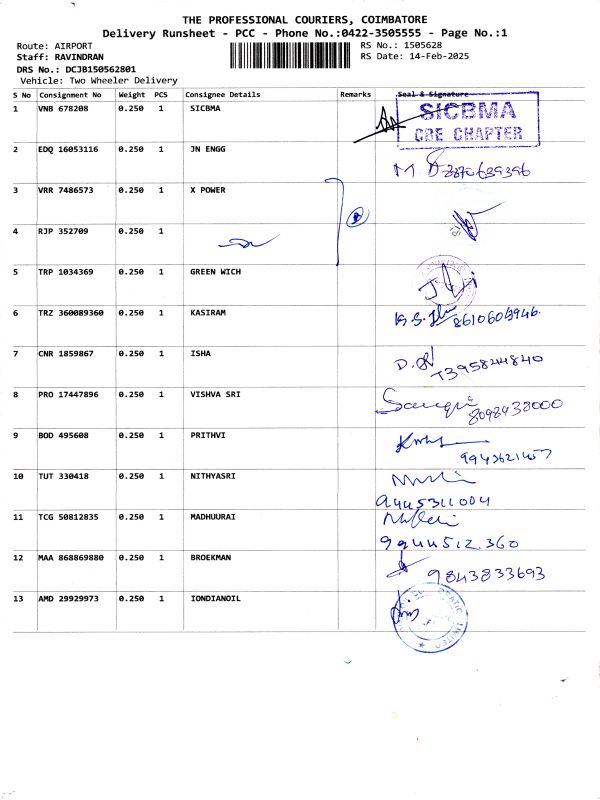 THE PROFESSIONAL COURIERS, COIMBATORE
Delivery Runsheet - PCC - Phone No.:0422-3505555 - Page No.:1
Route: AIRPORT RS No.: 1505628
Staff: RAVINDRAN RS Date: 14-Feb-2025
DRS No.: DCJB150562801
Vehicle: Two Wheeler Delivery
S No Consignment No Weight PCS Consignee Details Remarks Seal & Signature
1 VNB 678208 0.250 1 SICBMA
SICBMA
CBE CHAPTER
2 EDQ 16053116 0.250 1 JN ENGG
3 VRR 7486573 0.250 1 X POWER
4 RJP 352709 0.250 1
5 TRP 1034369 0.250 1 GREEN WICH
6 TRZ 360089360 0.250 1 KASIRAM
7 CNR 1859867 0.250 1 ISHA
8 PRO 17447896 0.250 1 VISHVA SRI
8098438000
9 BOD 495608 0.250 1 PRITHVI
9943621457
10 TUT 330418 0.250 1 NITHYASRI
9445311004
11 TCG 50812835 0.250 1 MADHUURAI
9244512360
12 MAA 868869880 0.250 1 BROEKMAN
9843833693
13 AMD 29929973 0.250 1 IONDIANOIL